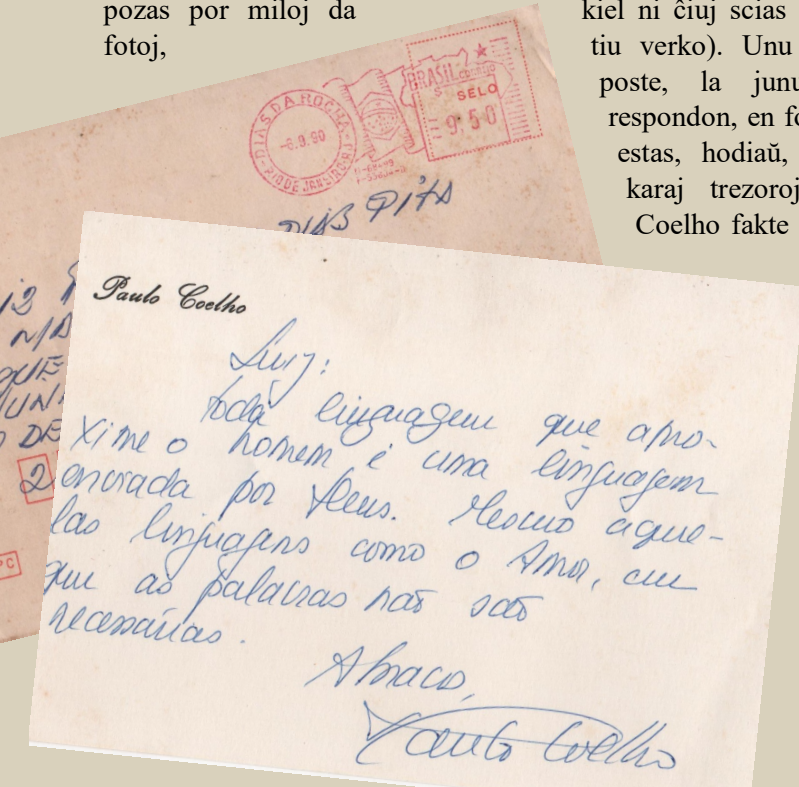 pozas por miloj da
fotoj,
kiel ni ĉiuj scias
tiu verko). Unu
poste, la junu
respondon, en fo
estas, hodiaŭ,
karaj trezoroj
Coelho fakte
BRASIL CORREIO
SELO
9.50
DIAS DA ROCHA
RIO DE JANEIRO
DIAS PITA
QUE
DE
2
Paulo Coelho
Luiz:
toda linguagem que apro-
xime o homem é uma linguagem
enviada por Deus. Mesmo aque-
las linguagens como o Amor, em
que as palavras não são
necessárias.
Abraços,
Paulo Coelho